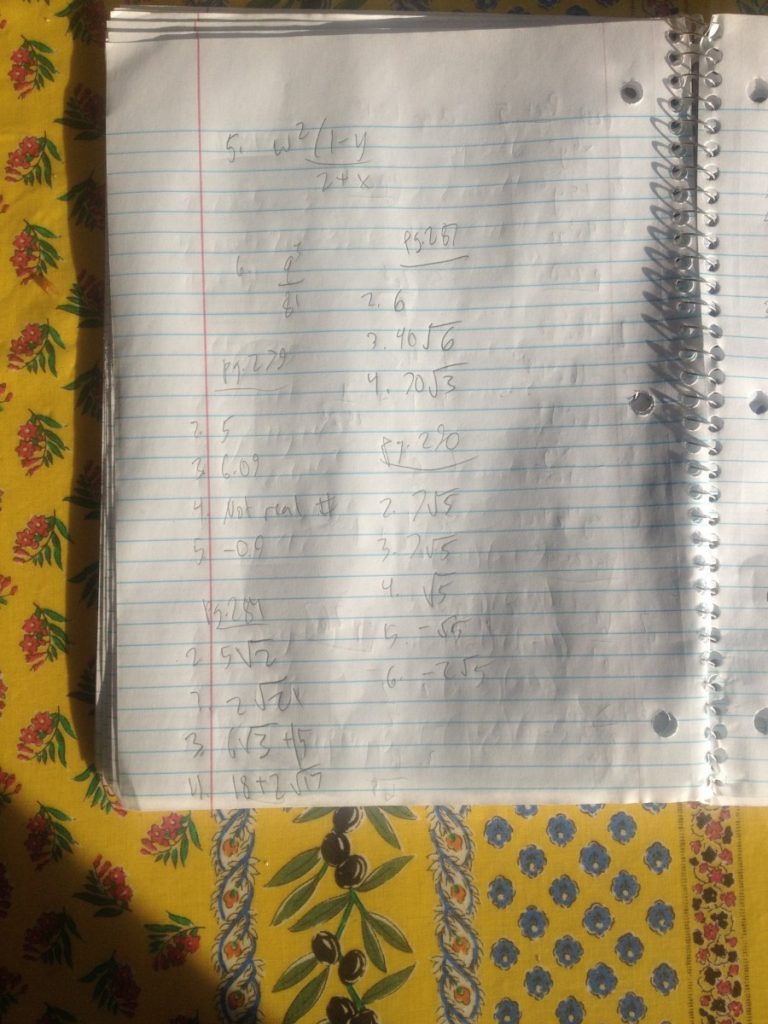 5. w²(1-y
2+x
6. q
81
pg. 279
2. 5
3. 6.09
4. Not real #
5. -0.9
pg. 287
2. 5√2
3. 6√3 + 5
4. 18+2√17
2. 6
3. 40√6
4. 70√3
pg. 290
2. 7√5
3. 7√5
4. √5
5. -√5
6. -2√5